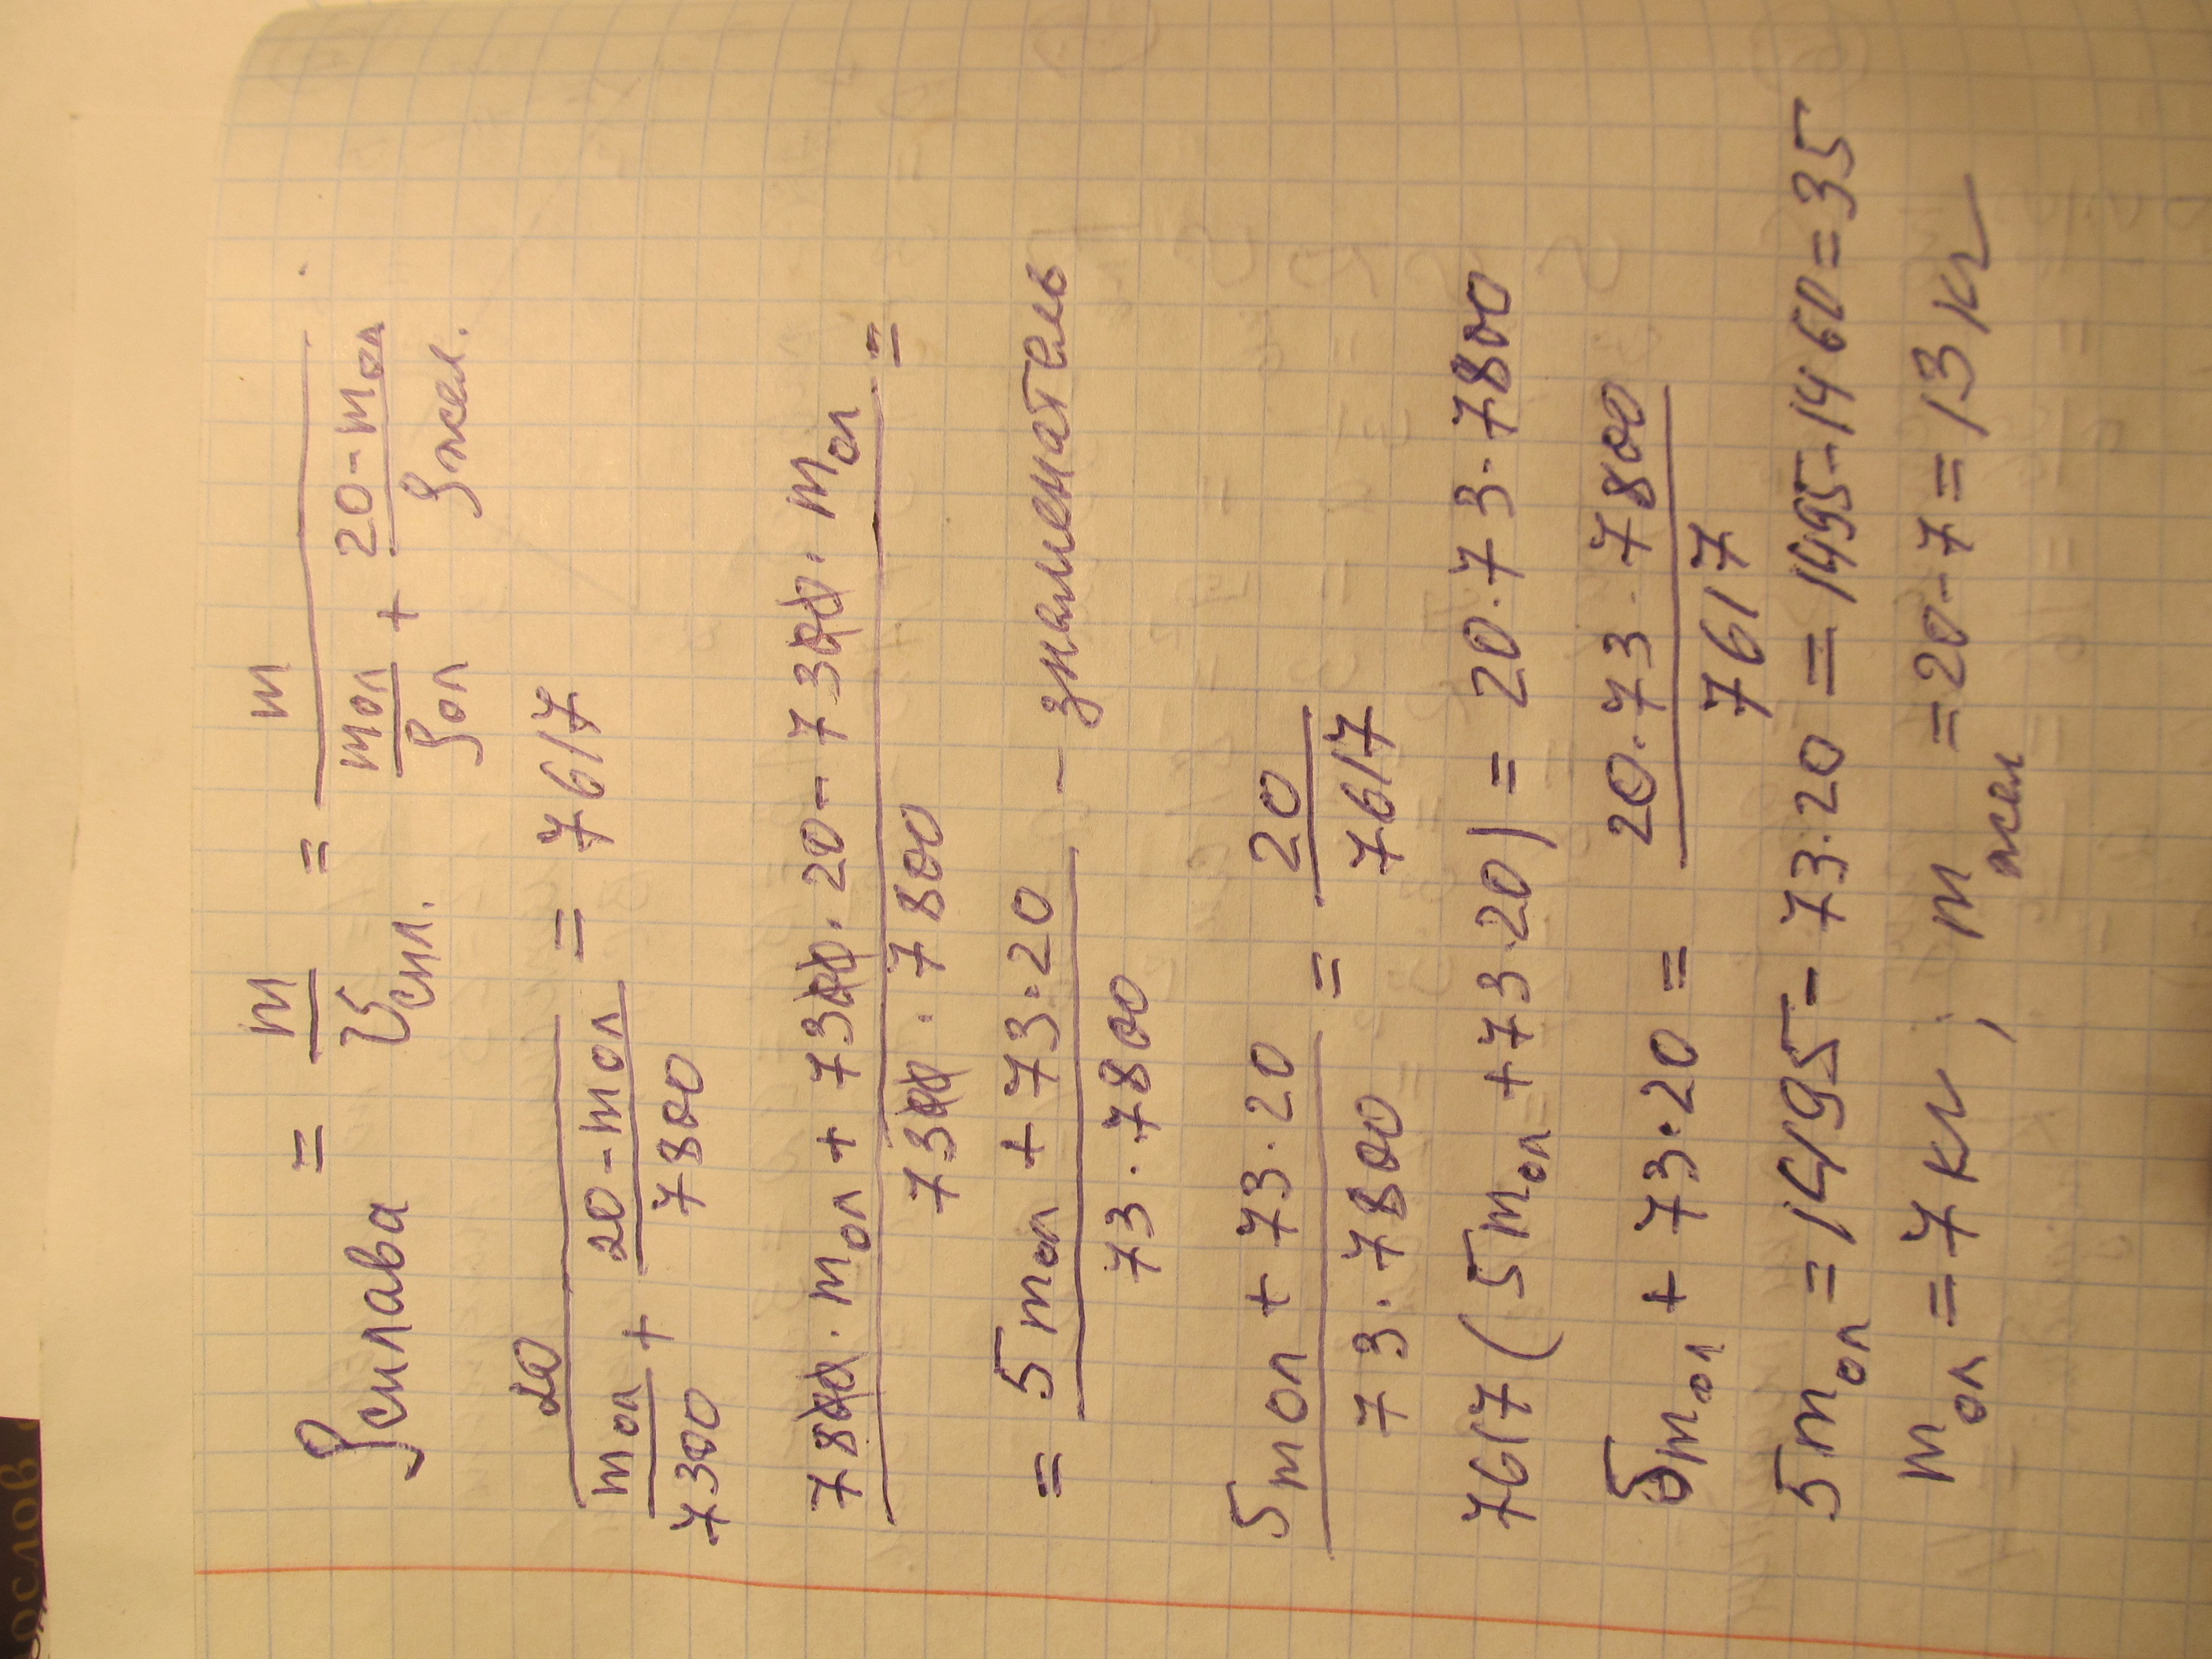 ρсплава = m/Vспл. = m/(mол/ρол + (20-mол)/ρжел.)
20/(mол/7300 + (20-mол)/7800) = 7617
(7800·mол + 7300·20-7300·mол)/(7300·7800) =
= (5mол + 73·20)/(73·7800) - знаменатель
(5mол + 73·20)/(73·7800) = 20/7617
7617(5mол+73·20)=20·73·7800
5mол + 73·20 = (20·73·7800)/7617
5mол=1495-73·20=1495-1460=35
mол=7кг; mжел=20-7=13кг
ослов